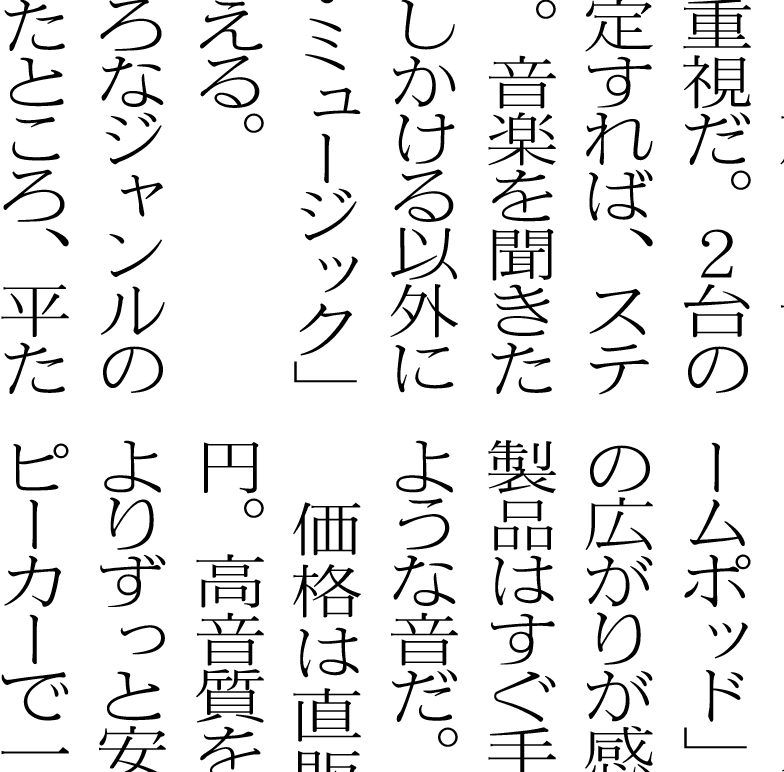 重視だ。2台の
定すれば、ステ
。音楽を聞きた
しかける以外に
ミュージック」
える。
ろなジャンルの
たところ、平た
ームポッド」
の広がりが感
製品はすぐ手
ような音だ。
価格は直販
円。高音質を
よりずっと安
ピーカーで一